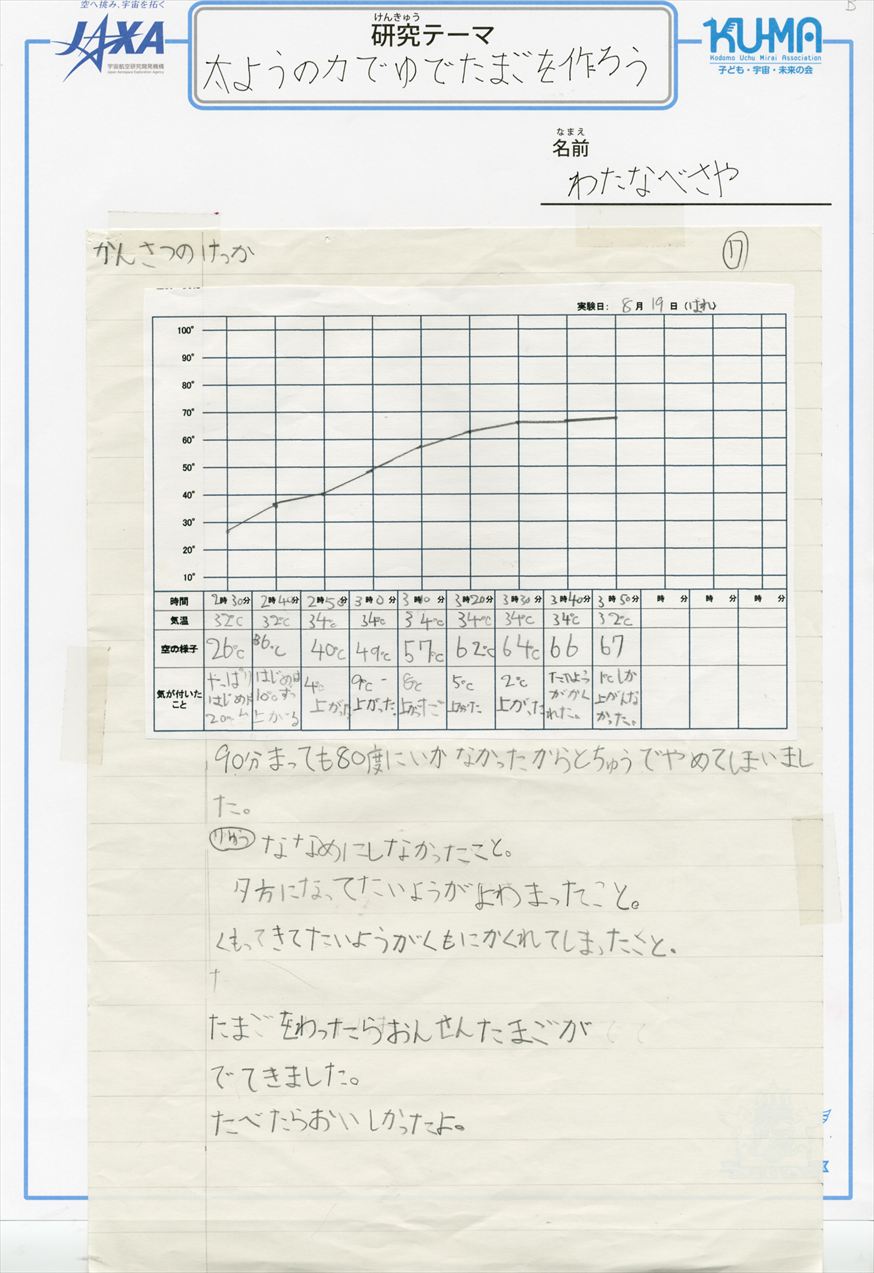 空へ挑み、宇宙を拓く
JAXA
宇宙航空研究開発機構
Japan Aerospace Exploration Agency
けんきゅう
研究テーマ
太ようの力でゆでたまごを作ろう
KUMA
Kodomo Uchu Mirai Association
子ども・宇宙・未来の会
なまえ
名前
わたなべさや
かんさつのけっか
17
実験日: 8月19日(はれ)
100°
90°
80°
70°
60°
50°
40°
30°
20°
10°
時間 2時30分 2時40分 2時50分 3時0分 3時10分 3時20分 3時30分 3時40分 3時50分 時 分 時 分 時 分
気温 32℃ 32℃ 34℃ 34℃ 34℃ 34℃ 34℃ 34℃ 32℃
空の様子 26℃ 36℃ 40℃ 49℃ 57℃ 62℃ 64℃ 66 67
気が付いたこと はじめは はじめは 10℃ずつ上がる 4℃上がった 9℃上がった。 8℃ 5℃上がった 2℃上がった たいようがかくれた。 1℃しか上がんなかった。
90分まっても80度にいかなかったからとちゅうでやめてしまいまし
た。
りゆう ななめにしなかったこと。
夕方になってたいようがよわまったこと。
くもってきてたいようがくもにかくれてしまったこと。
たまごをわったらおんせんたまごが
でてきました。
たべたらおいしかったよ。